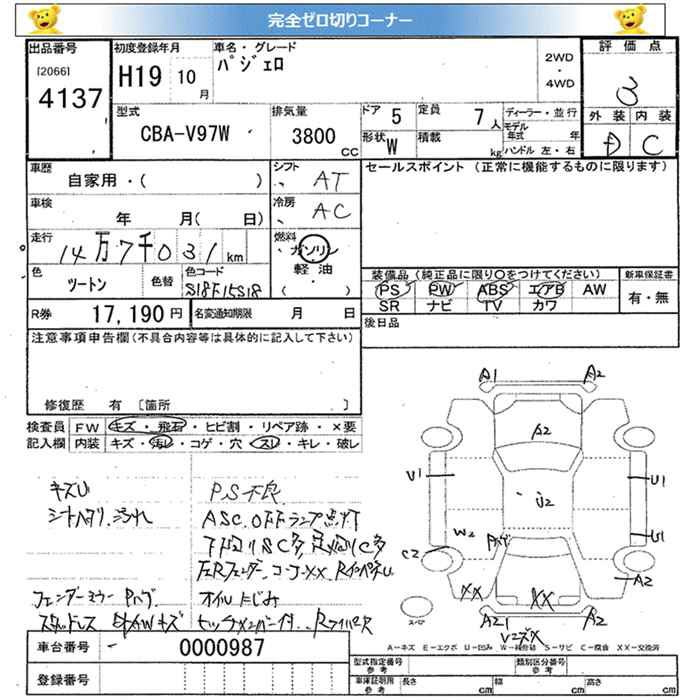 完全ゼロ切りコーナー
出品番号 初度登録年月 車名・グレード 評価点
[2066] H19 10月 パジェロ 2WD・4WD 3
4137
型式 排気量 ドア 5 定員 7人 ディーラー・並行 外装 内装
CBA-V97W 3800cc 形状 W 積載 kg モデル年式 年 D C
ハンドル 左・右
車歴 シフト セールスポイント (正常に機能するものに限ります)
自家用・( ) AT
車検 冷房
年 月( 日) AC
走行 燃料
14万7千031km ガソリン
軽油
( )
色 色替 色コード 装備品(純正品に限り○をつけてください) 新車保証書
ツートン S18F15S18 PS PW ABS エアB AW 有・無
SR ナビ TV カワ
R券 17,190円 名変通知期限 月 日 後日品
注意事項申告欄(不具合内容等は具体的に記入して下さい)
修復歴 有 〔箇所 〕
検査員 FW キズ・飛石・ヒビ割・リペア跡・×要
記入欄 内装 キズ・汚レ・コゲ・穴・スレ・キレ・破レ
A1 A2
A2
キズU PS不良 U1 U2 U1
シートヘタリ、汚れ ASC.OFFランプ点灯
W2 U1
C2 A2
XX XX
オイルにじみ
キズ スペア A21 A2
車台番号 0000987 A-キズ E-エクボ U-凹み W-補修跡 S-サビ C-腐食 XX-交換済
登録番号 型式指定番号 参考 類別区分番号 参考
車庫証明用 参考 長さ cm 幅 cm 高さ cm